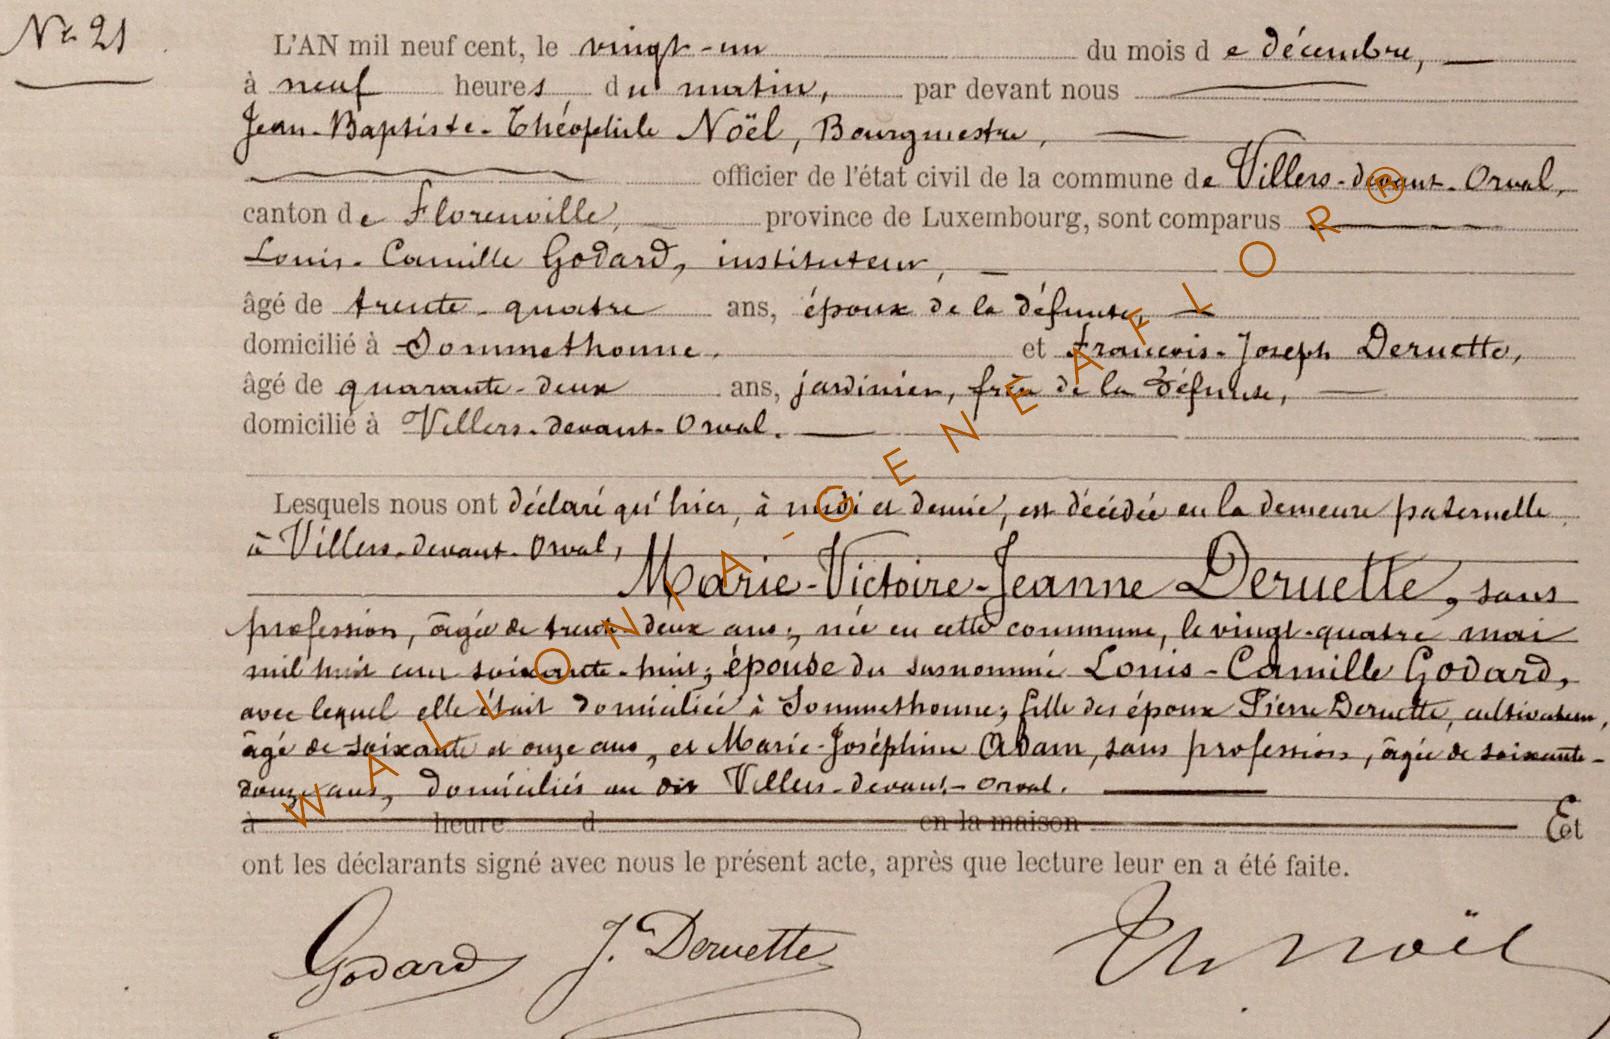 Nº 21
L'AN mil neuf cent, le vingt-un du mois de décembre,
à neuf heures du matin, par devant nous
Jean-Baptiste-Théophile Noël, Bourgmestre,
officier de l'état civil de la commune de Villers-devant-Orval,
canton de Florenville, province de Luxembourg, sont comparus
Louis-Camille Godard, instituteur,
âgé de trente-quatre ans, époux de la défunte,
domicilié à Sommethonne. et François-Joseph Deruette,
âgé de quarante-deux ans, jardinier, frère de la défunte,
domicilié à Villers-devant-Orval.
Lesquels nous ont déclaré qu'hier, à midi et demie, est décédée en la demeure paternelle
à Villers-devant-Orval,
Marie-Victoire-Jeanne Deruette, sans
profession, âgée de trente-deux ans; née en cette commune, le vingt-quatre mai
mil huit cent soixante-huit; épouse du susnommé Louis-Camille Godard,
avec lequel elle était domiciliée à Sommethonne; fille des époux Pierre Deruette, cultivateur,
âgé de soixante et onze ans, et Marie-Joséphine Adam, sans profession, âgée de soixante-
douze ans, domiciliés au dit Villers-devant-Orval.
à heure d en la maison Et
ont les déclarants signé avec nous le présent acte, après que lecture leur en a été faite.
Godard J. Deruette Th Noël
WALLONIA-GENEAFLOR®